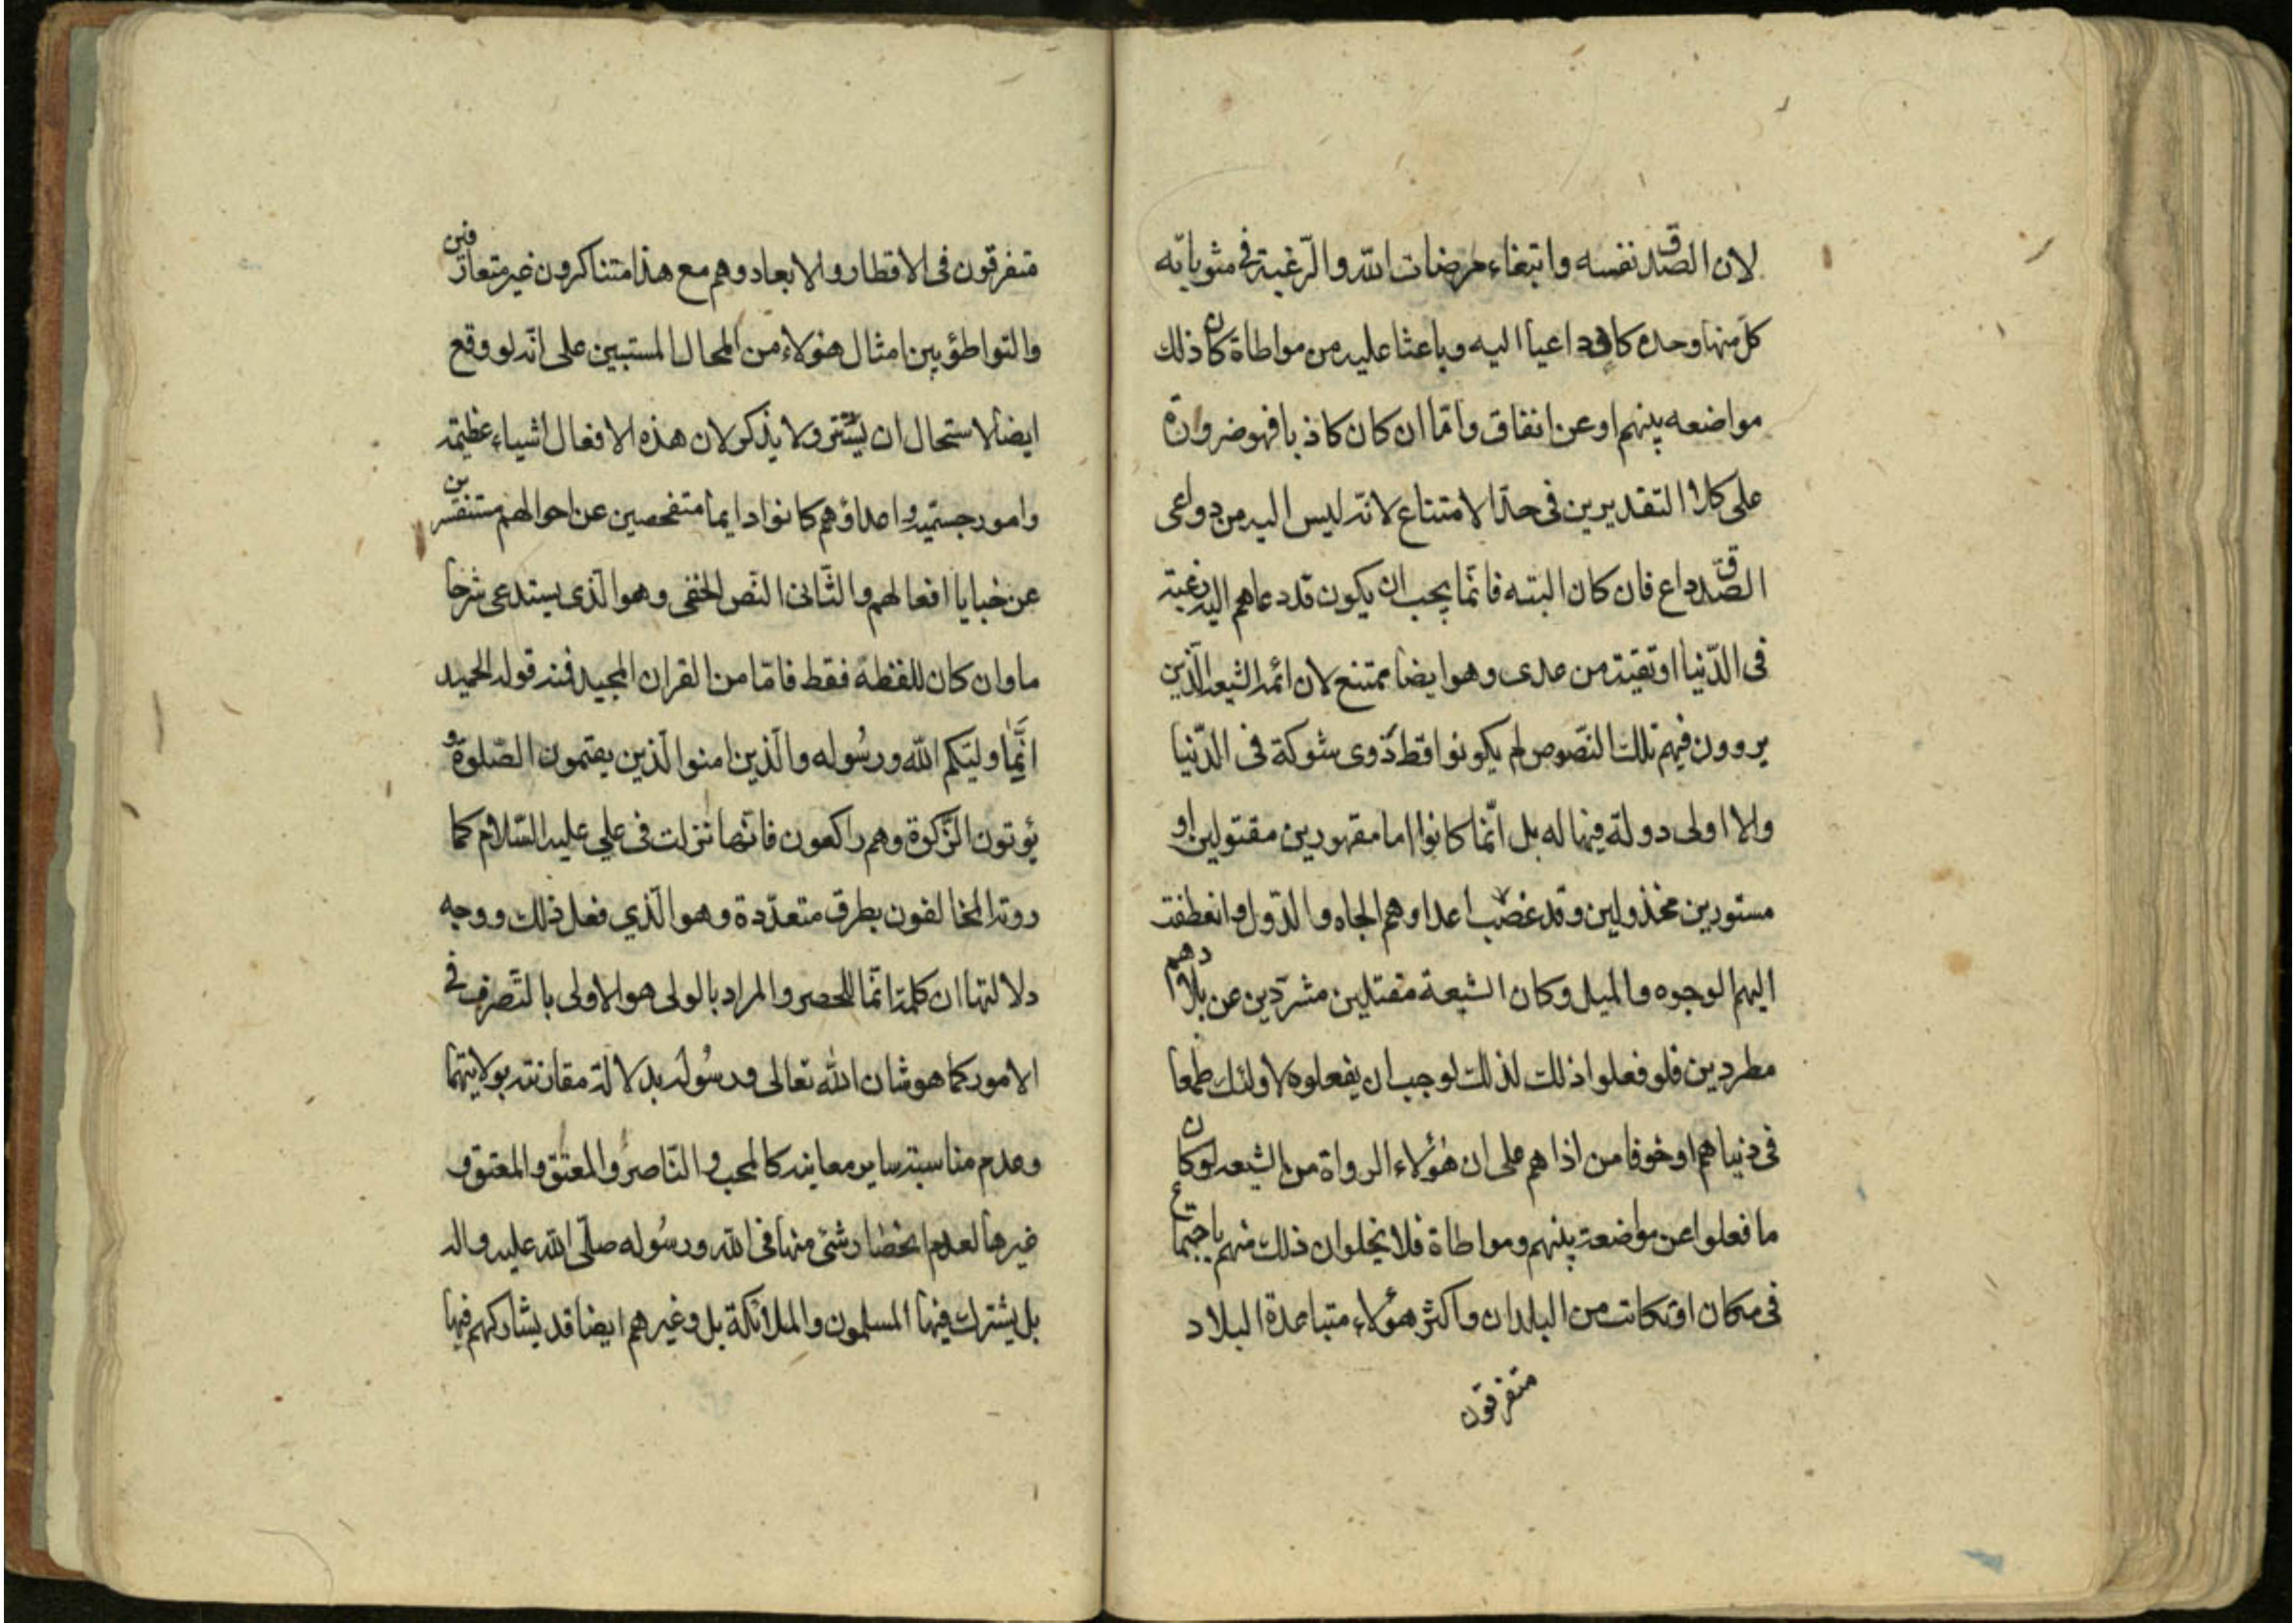 لان الصدق نفسه وابتغاء مرضات الله والرغبة في مثوباته
كل منها وحده كاف داعيا اليه وباعثا عليه من مواطاة كان ذلك
مواضعه بينهم او عن اتفاق واما ان كان كاذبا فهو ضرورة
على كلا التقديرين في حد الامتناع لانه ليس اليه من دواعى
الصدق داع فان كان البته فانما يجب ان يكون قد دعاهم اليه رغبة
فى الدنيا او تقية من عدى وهو ايضا ممتنع لان ائمة الشيعه الذين
يروون فيهم تلك النصوص لم يكونوا قط ذوى شوكة فى الدنيا
ولا اولى دولة فيها له بل انما كانوا اما مقهورين مقتولين او
مستورين مخذولين وقد غصب اعداوهم الجاه والدول وانعطفت
اليهم الوجوه والميل وكان الشيعة مقتلين مشردين عن بلادهم
مطردين فلو فعلوا ذلك لذلك لوجب ان يفعلوه لاولئك طمعا
فى دنياهم او خوفا من اذاهم على ان هؤلاء الرواة من الشيعه لو كان
ما فعلوا عن مواضعة بينهم ومواطاة فلا يخلو ان ذلك منهم باجتماع
فى مكان او تكاتب من البلدان واكثر هؤلاء متباعدة البلاد
متفرقون
متفرقون فى الاقطار والابعاد وهم مع هذا متناكرون غير متعارفين
والتواطؤ بين امثال هؤلاء من المحال المستبين على انه لو وقع
ايضا لاستحال ان يستتر ولا يذكر لان هذه الافعال اشياء عظيمة
وامور جسيمة واعداؤهم كانوا دايما متفحصين عن احوالهم مستفسرين
عن خبايا افعالهم والثانى النص الخفى وهو الذى يستدعى شرحا
ما وان كان للفظة فقط فاما من القران المجيد فمنه قوله الحميد
انما وليكم الله ورسوله والذين امنوا الذين يقيمون الصلوة و
يؤتون الزكوة وهم راكعون فانها نزلت فى علي عليه السلام كما
روته المخالفون بطرق متعددة وهو الذي فعل ذلك ووجه
دلالتها ان كلمة انما للحصر والمراد بالولى هو الاولى بالتصرف في
الامور كما هو شان الله تعالى ورسوله بدلالة مقارنته بولايتهما
وعدم مناسبة ساير معانيه كالمحب والناصر والمعتق والمعتق و
غيرها لعدم انحصار شئ منها فى الله ورسوله صلى الله عليه واله
بل يشترك فيها المسلمون والملائكة بل وغيرهم ايضا قد يشاركهم فيها